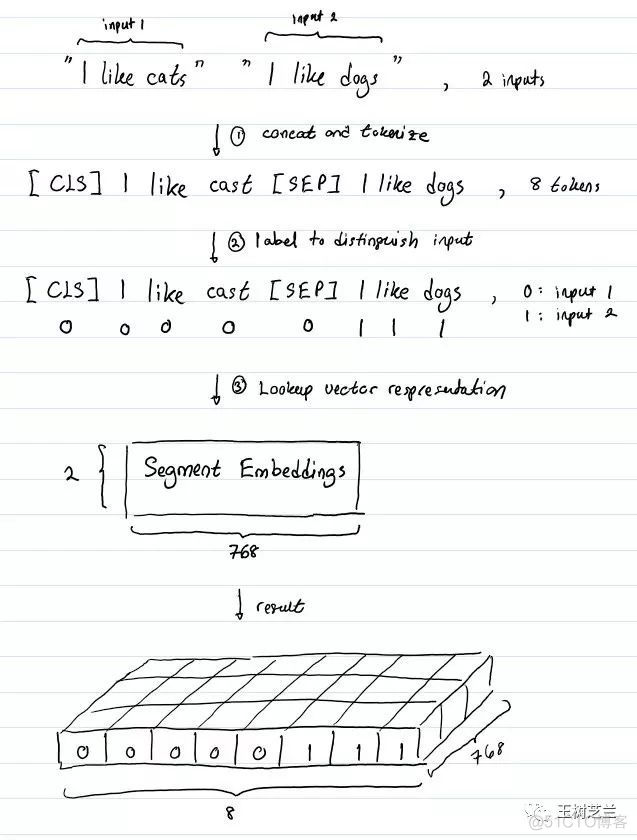 input 1 input 2
"I like cats" "I like dogs", 2 inputs
① concat and tokenize
[CLS] I like cast [SEP] I like dogs, 8 tokens
② label to distinguish input
[CLS] I like cast [SEP] I like dogs, 0: input 1
0 0 0 0 0 1 1 1 1: input 2
③ Lookup vector respresentation
2 { Segment Embeddings
768
result
0 0 0 0 0 1 1 1
768
8
玉树芝兰
@51CTO博客